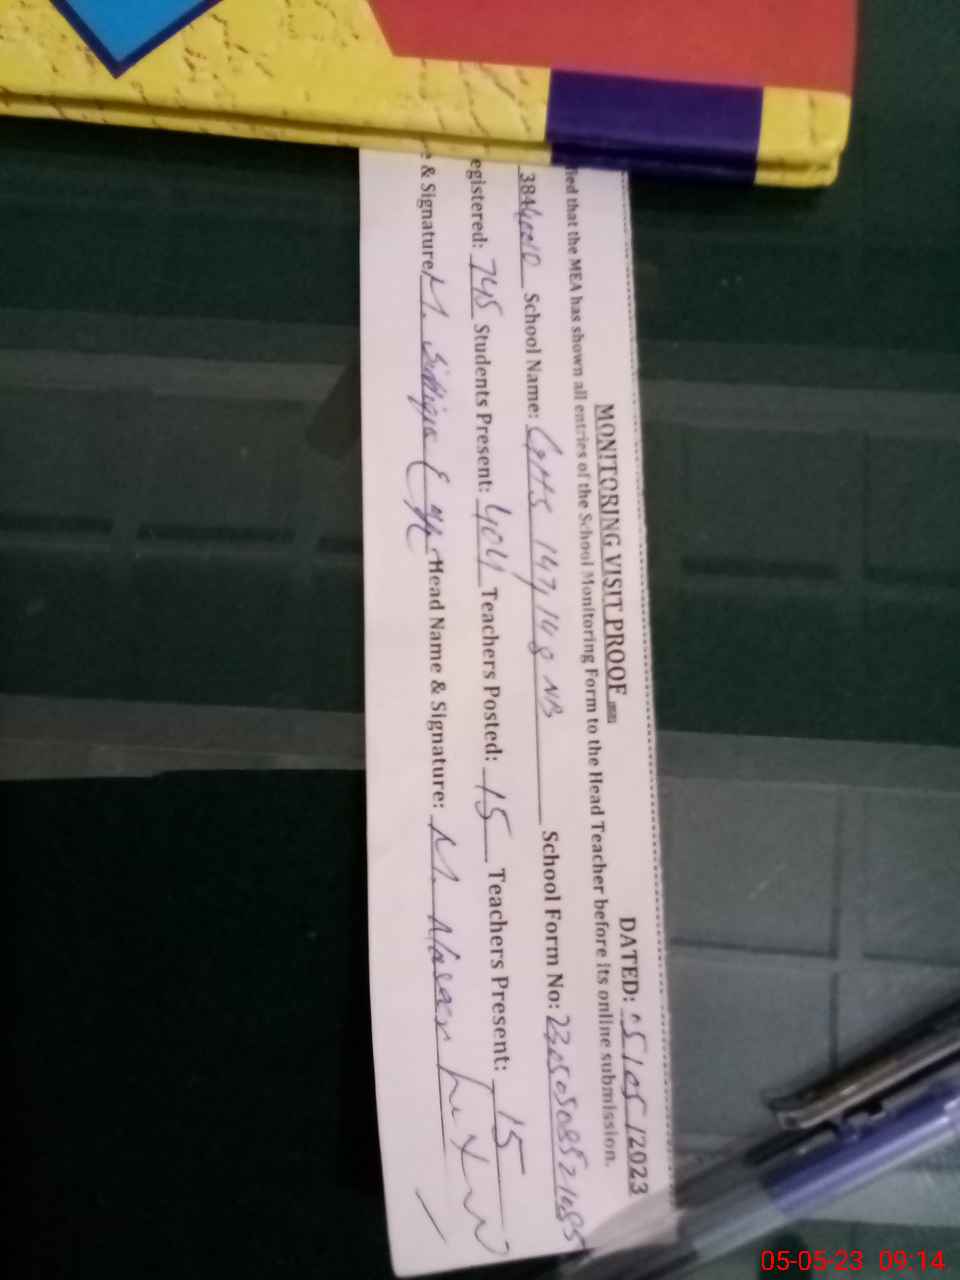 MONITORING VISIT PROOF
DATED: 05/05/2023
fied that the MEA has shown all entries of the School Monitoring Form to the Head Teacher before its online submission.
38440010 School Name: GHS 147,148 NB School Form No:
egistered: 745 Students Present: 404 Teachers Posted: 15 Teachers Present: 15
e & Signature: M. Head Name & Signature: M.
05-05-23 09:14